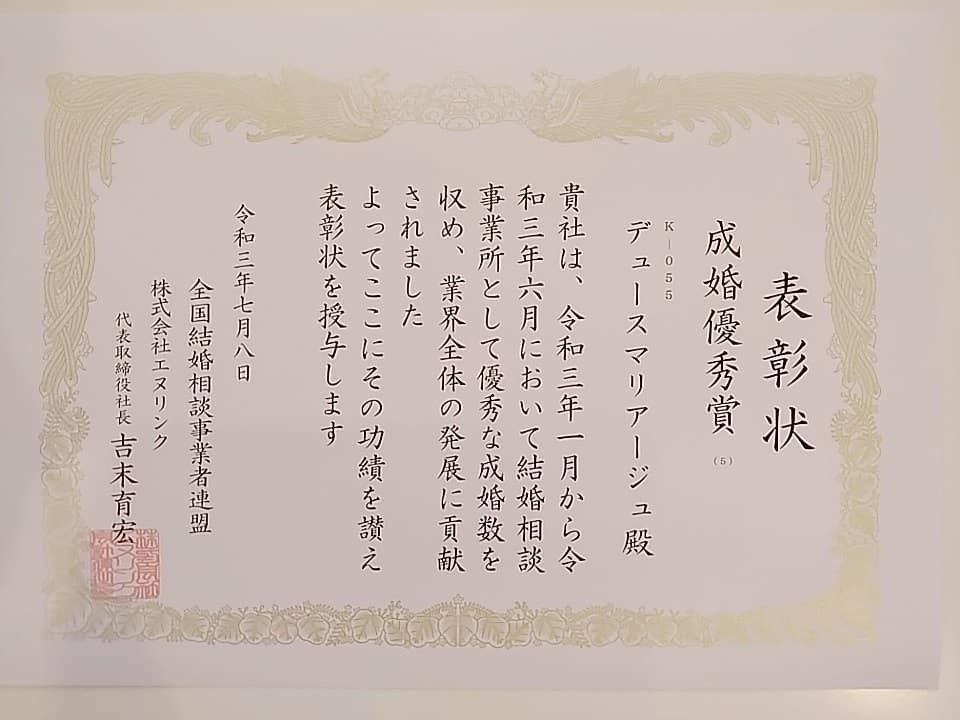 表彰状
成婚優秀賞(5)
K-055
デュースマリアージュ殿
貴社は、令和三年一月から令
和三年六月において結婚相談
事業所として優秀な成婚数を
収め、業界全体の発展に貢献
されました
よってここにその功績を讃え
表彰状を授与します
令和三年七月八日
全国結婚相談事業者連盟
株式会社エヌリンク
代表取締役社長 吉末育宏